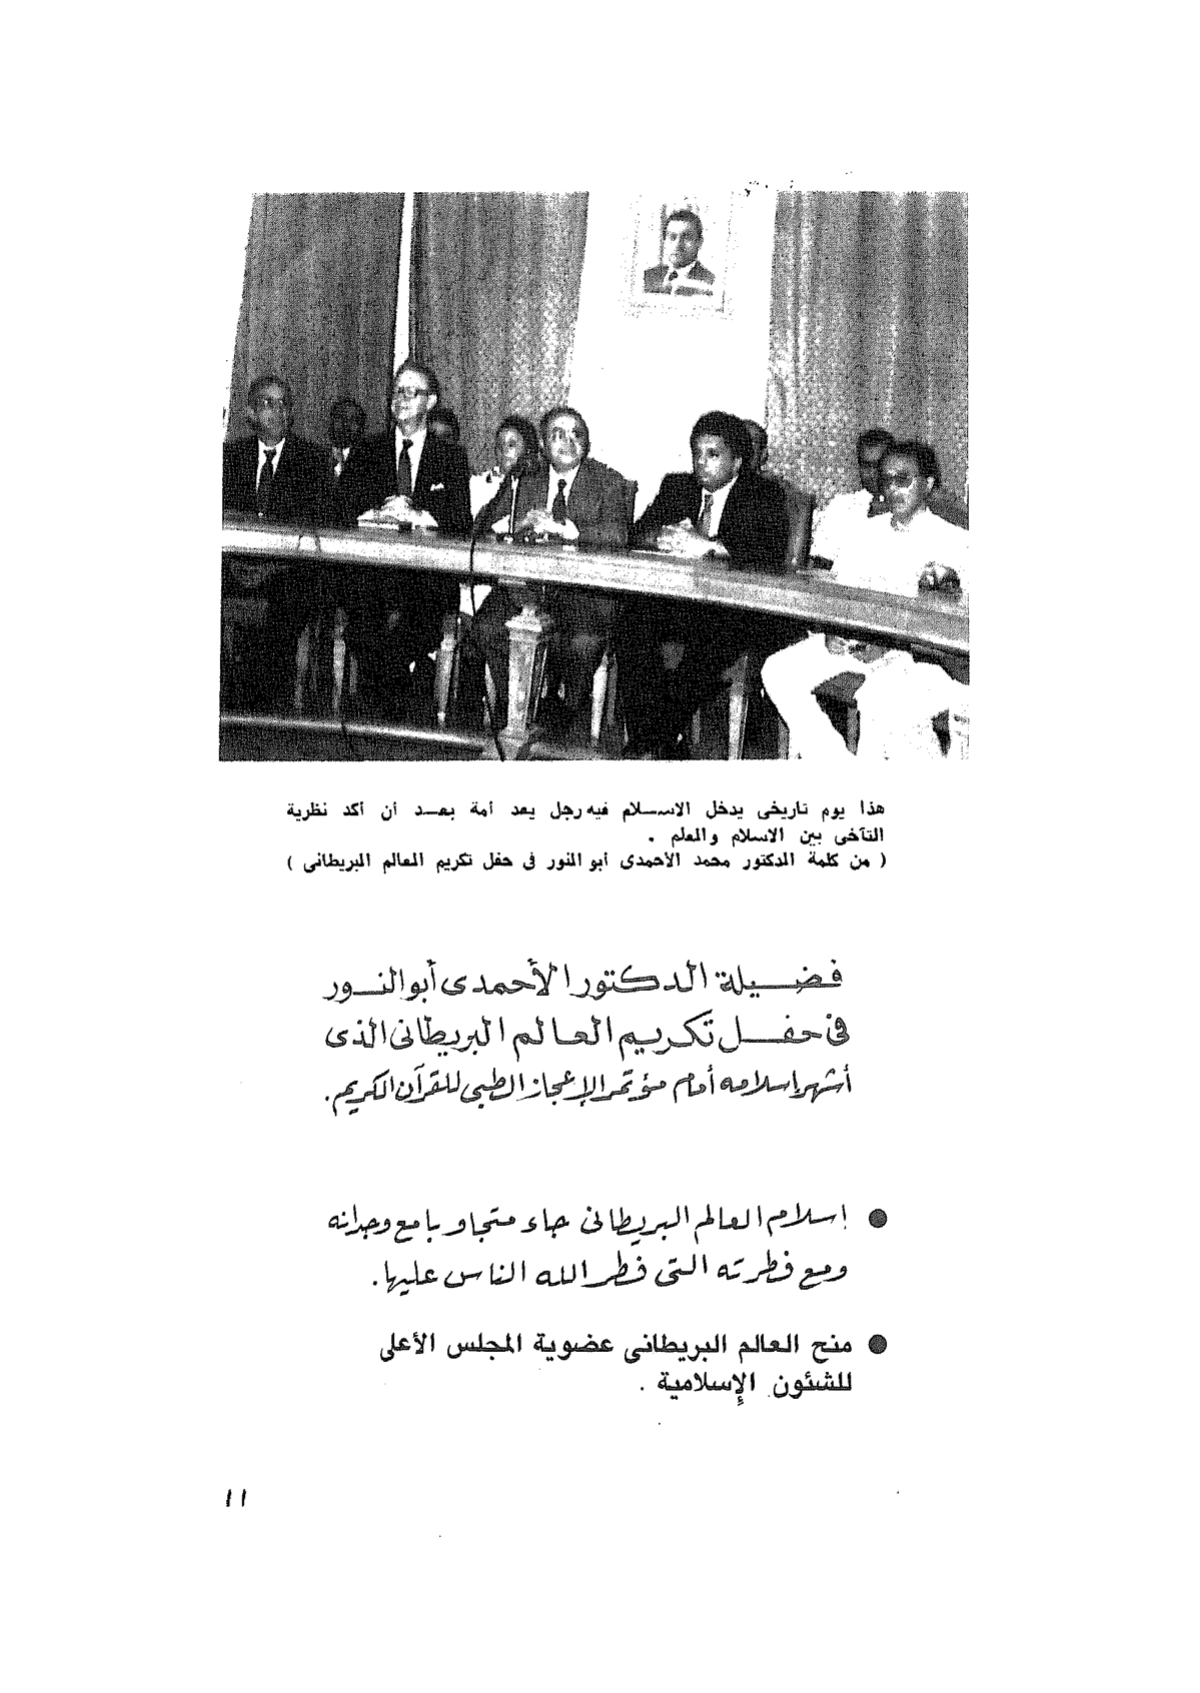 هذا يوم تاريخى يدخل الاســلام فيه رجل يعد أمة بعــد أن أكد نظرية
التآخى بين الاسلام والعلم .
( من كلمة الدكتور محمد الأحمدى أبو النور فى حفل تكريم العالم البريطانى )
فضيلة الدكتور الأحمدى أبو النور
فى حفل تكريم العالم البريطانى الذى
أشهر إسلامه أمام مؤتمر الإعجاز الطبى للقرآن الكريم .
● إسلام العالم البريطانى جاء متجاوبا مع وجدانه
ومع فطرته التى فطر الله الناس عليها .
● منح العالم البريطانى عضوية المجلس الأعلى
للشئون الإسلامية .
١١